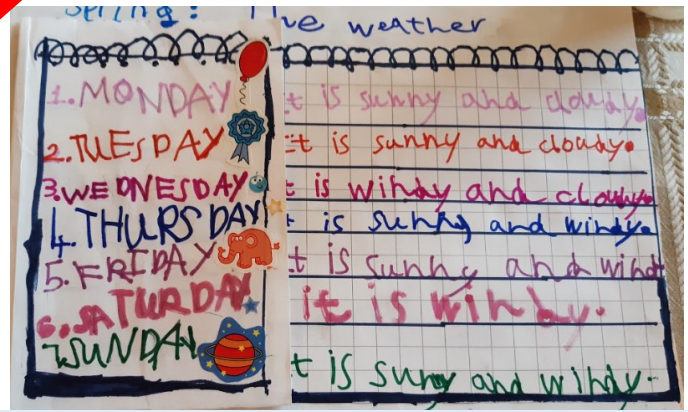 Spring: The weather
1. MONDAY it is sunny and cloudy.
2. TUESDAY it is sunny and cloudy.
3. WEDNESDAY it is windy and cloudy.
4. THURSDAY it is sunny and windy.
5. FRIDAY it is sunny and wind
6. SATURDAY it is windy.
7. SUNDAY it is suny and windy.